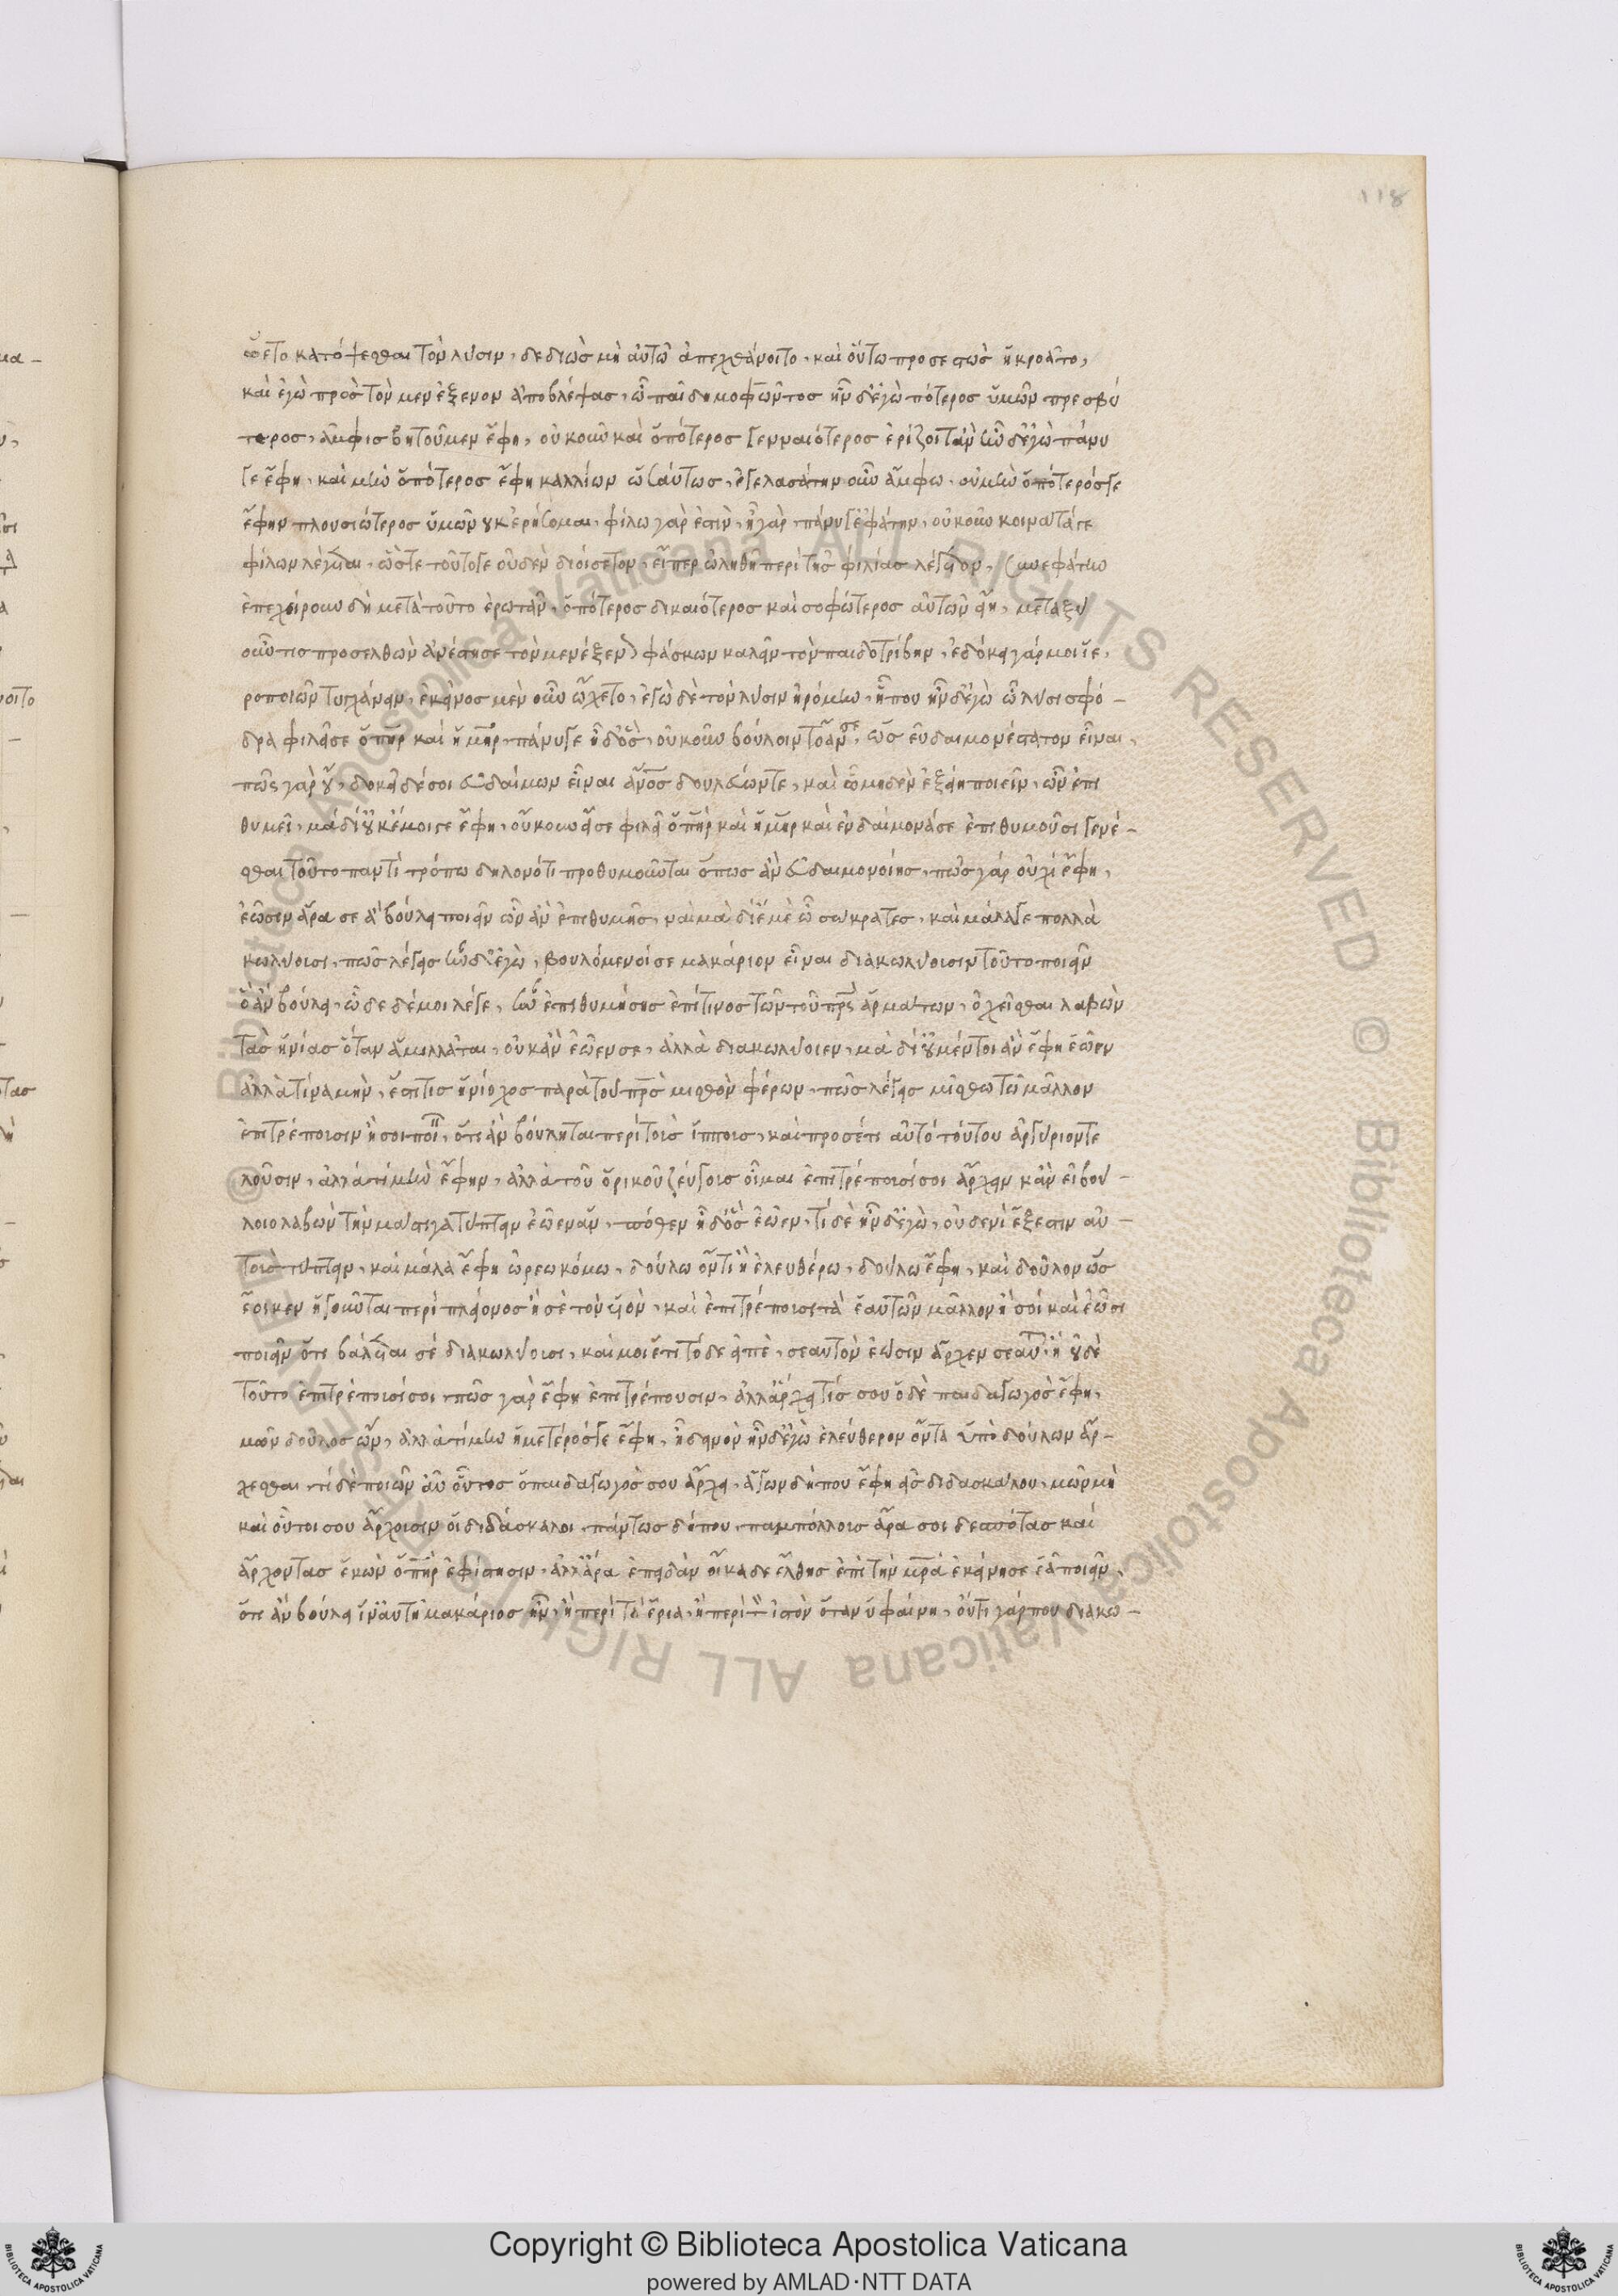 118
ὤετο κατόψεσθαι τὸν λύσιν, δεδιὼς μὴ αὐτῶ ἀπεχθάνοιτο, καὶ οὕτω προσεστὼς ἠκροᾶτο,
καὶ ἐγὼ πρὸς τὸν μενέξενον ἀποβλέψας, ὦ παῖ δημοφῶντος ἦν δ' ἐγὼ πότερος ὑμῶν πρεσβύ
τερος, ἀμφισβητοῦμεν ἔφη, οὐκοῦν καὶ ὁπότερος γενναιότερος ἐρίζοιτ' ἂν ἦν δ' ἐγὼ πάνυ
γε ἔφη, καὶ μὴν ὁπότερος ἔφη καλλίων ὡσαύτως, ἐγελασάτην οὖν ἄμφω, οὐ μὴν ὁπότερός γε
ἔφην πλουσιώτερος ὑμῶν οὐκ ἐρήσομαι, φίλω γάρ ἐστὸν, ἦ γάρ, πάνυ γ' ἐφάτην, οὐκοῦν κοινὰ τά γε
φίλων λέγεται, ὥστε τούτο γε οὐδὲν διοίσετον, εἴπερ ἀληθῆ περὶ τῆς φιλίας λέγετον, συνεφάτην
ἐπεχείρουν δὴ μετὰ τοῦτο ἐρωτᾶν, ὁπότερος δικαιότερος καὶ σοφώτερος αὐτῶν εἴη, μεταξὺ
οὖν τις προσελθὼν ἀνέστησε τὸν μενέξενον φάσκων καλεῖν τὸν παιδοτρίβην, ἐδόκει γάρ μοι ἱε
ροποιῶν τυγχάνειν, ἐκεῖνος μὲν οὖν ὤχετο, ἐγὼ δὲ τὸν λύσιν ἠρόμην, ἦ που ἦν δ' ἐγὼ ὦ λύσι σφό –
δρα φιλεῖ σε ὁ πηρ καὶ ἡ μηρ, πάνυ γε ἦ δ' ὃς, οὐκοῦν βούλοιντο ἄν σε, ὡς εὐδαιμονέστατον εἶναι,
πῶς γὰρ οὔ, δοκεῖ δέ σοι εὐδαίμων εἶναι ἄνος δουλεύων τε, καὶ ὧ μηδὲν ἐξείη ποιεῖν, ὧν ἐπι
θυμεῖ, μὰ δί' οὐκ ἔμοιγε ἔφη, οὐκοῦν εἴ σε φιλεῖ ὁ πηρ καὶ ἡ μηρ καὶ εὐδαίμονά σε ἐπιθυμοῦσι γενέ –
σθαι τοῦτο παντὶ τρόπω δηλονότι προθυμοῦνται ὅπως ἂν εὐδαιμονοίης, πῶς γὰρ οὐχὶ ἔφη,
ἐῶσιν ἄρα σε ἃ βούλει ποιεῖν ὧν ἂν ἐπιθυμῆς, ναὶ μὰ δί' ἐμὲ ὦ σώκρατες, καὶ μάλα γε πολλὰ
κωλύουσι, πῶς λέγεις ἦν δ' ἐγὼ, βουλόμενοί σε μακάριον εἶναι διακωλύουσιν τοῦτο ποιεῖν
ὃ ἂν βούλη, ὧδε δέ μοι λέγε, ἢν ἐπιθυμήσης ἐπί τινος τῶν τοῦ πρς ἁρμάτων, ὀχεῖσθαι λαβὼν
τὰς ἡνίας ὅταν ἁμιλλᾶται, οὐκ ἂν ἐῶεν σε, ἀλλὰ διακωλύοιεν, μὰ δί' οὐ μέντοι ἂν ἔφη ἐῶεν
ἀλλὰ τίνα μὴν, ἔστι τις ἡνίοχος παρὰ τοῦ πρς μισθὸν φέρων, πῶς λέγεις μισθωτῶ μᾶλλον
ἐπιτρέπουσιν ἢ σοὶ ποι, ὅτι ἂν βούληται περὶ τοὺς ἵππους, καὶ προσέτι αὐτὸ τούτου ἀργύριον τε
λοῦσιν, ἀλλὰ τί μὴν ἔφην, ἀλλὰ τοῦ ὀρικοῦ ζεύγους οἶμαι ἐπιτρέπουσί σοι ἄρχειν κἂν εἰ βού –
λοιο λαβὼν τὴν μάστιγα τύπτειν ἐῶεν ἂν, πόθεν ἦ δ' ὃς ἐῶεν, τί δὲ ἦν δ' ἐγὼ, οὐδενὶ ἔξεστιν αὐ –
τοὺς τύπτειν, καὶ μάλα ἔφη ὀρεωκόμω, δούλω ὄντι ἢ ἐλευθέρω, δούλω ἔφη, καὶ δοῦλον ὡς
ἔοικεν ἡγοῦνται περὶ πλείονος ἢ σὲ τὸν υἱὸν, καὶ ἐπιτρέπουσι τὰ ἑαυτῶν μᾶλλον ἢ σοὶ καὶ ἐῶσι
ποιεῖν ὅτι βούλεται σὲ διακωλύουσι, καί μοι ἔτι τόδε εἰπὲ, σεαυτὸν ἐῶσιν ἄρχειν σεαυτοῦ ἢ οὐδὲ
τοῦτο ἐπιτρέπουσί σοι, πῶς γὰρ ἔφη ἐπιτρέπουσιν, ἀλλ' ἄρχει τίς σου ὅδε παιδαγωγὸς ἔφη,
μῶν δοῦλος ὢν, ἀλλὰ τί μὴν ἡμέτερός γε ἔφη, ἦ δεινὸν ἦν δ' ἐγὼ ἐλεύθερον ὄντα ὑπὸ δούλων ἄρ –
χεσθαι τί δὲ ποιῶν ἂν οὗτος ὁ παιδαγωγός σου ἄρχει, ἄγων δήπου ἔφη εἰς διδασκάλου, μῶν μὴ
καὶ οὗτοι σου ἄρχουσιν οἱ διδάσκαλοι, πάντως δήπου, παμπόλλους ἄρα σοι δεσπότας καὶ
ἄρχοντας ἑκὼν ὁ πηρ ἐφίστησιν, ἀλλ' ἄρα ἐπειδὰν οἴκαδε ἔλθης ἐπὶ τὴν μρα ἐκείνη σε ἐᾶ ποιεῖν,
ὅτι ἂν βούλη ἵν' αὐτῆ μακάριος ἦς, ἢ περὶ τὰ ἔρια, ἢ περὶ τὸν ἱστὸν ὅταν ὑφαίνη, οὔτι γάρ που διακω –
Copyright © Biblioteca Apostolica Vaticana
powered by AMLAD·NTT DATA